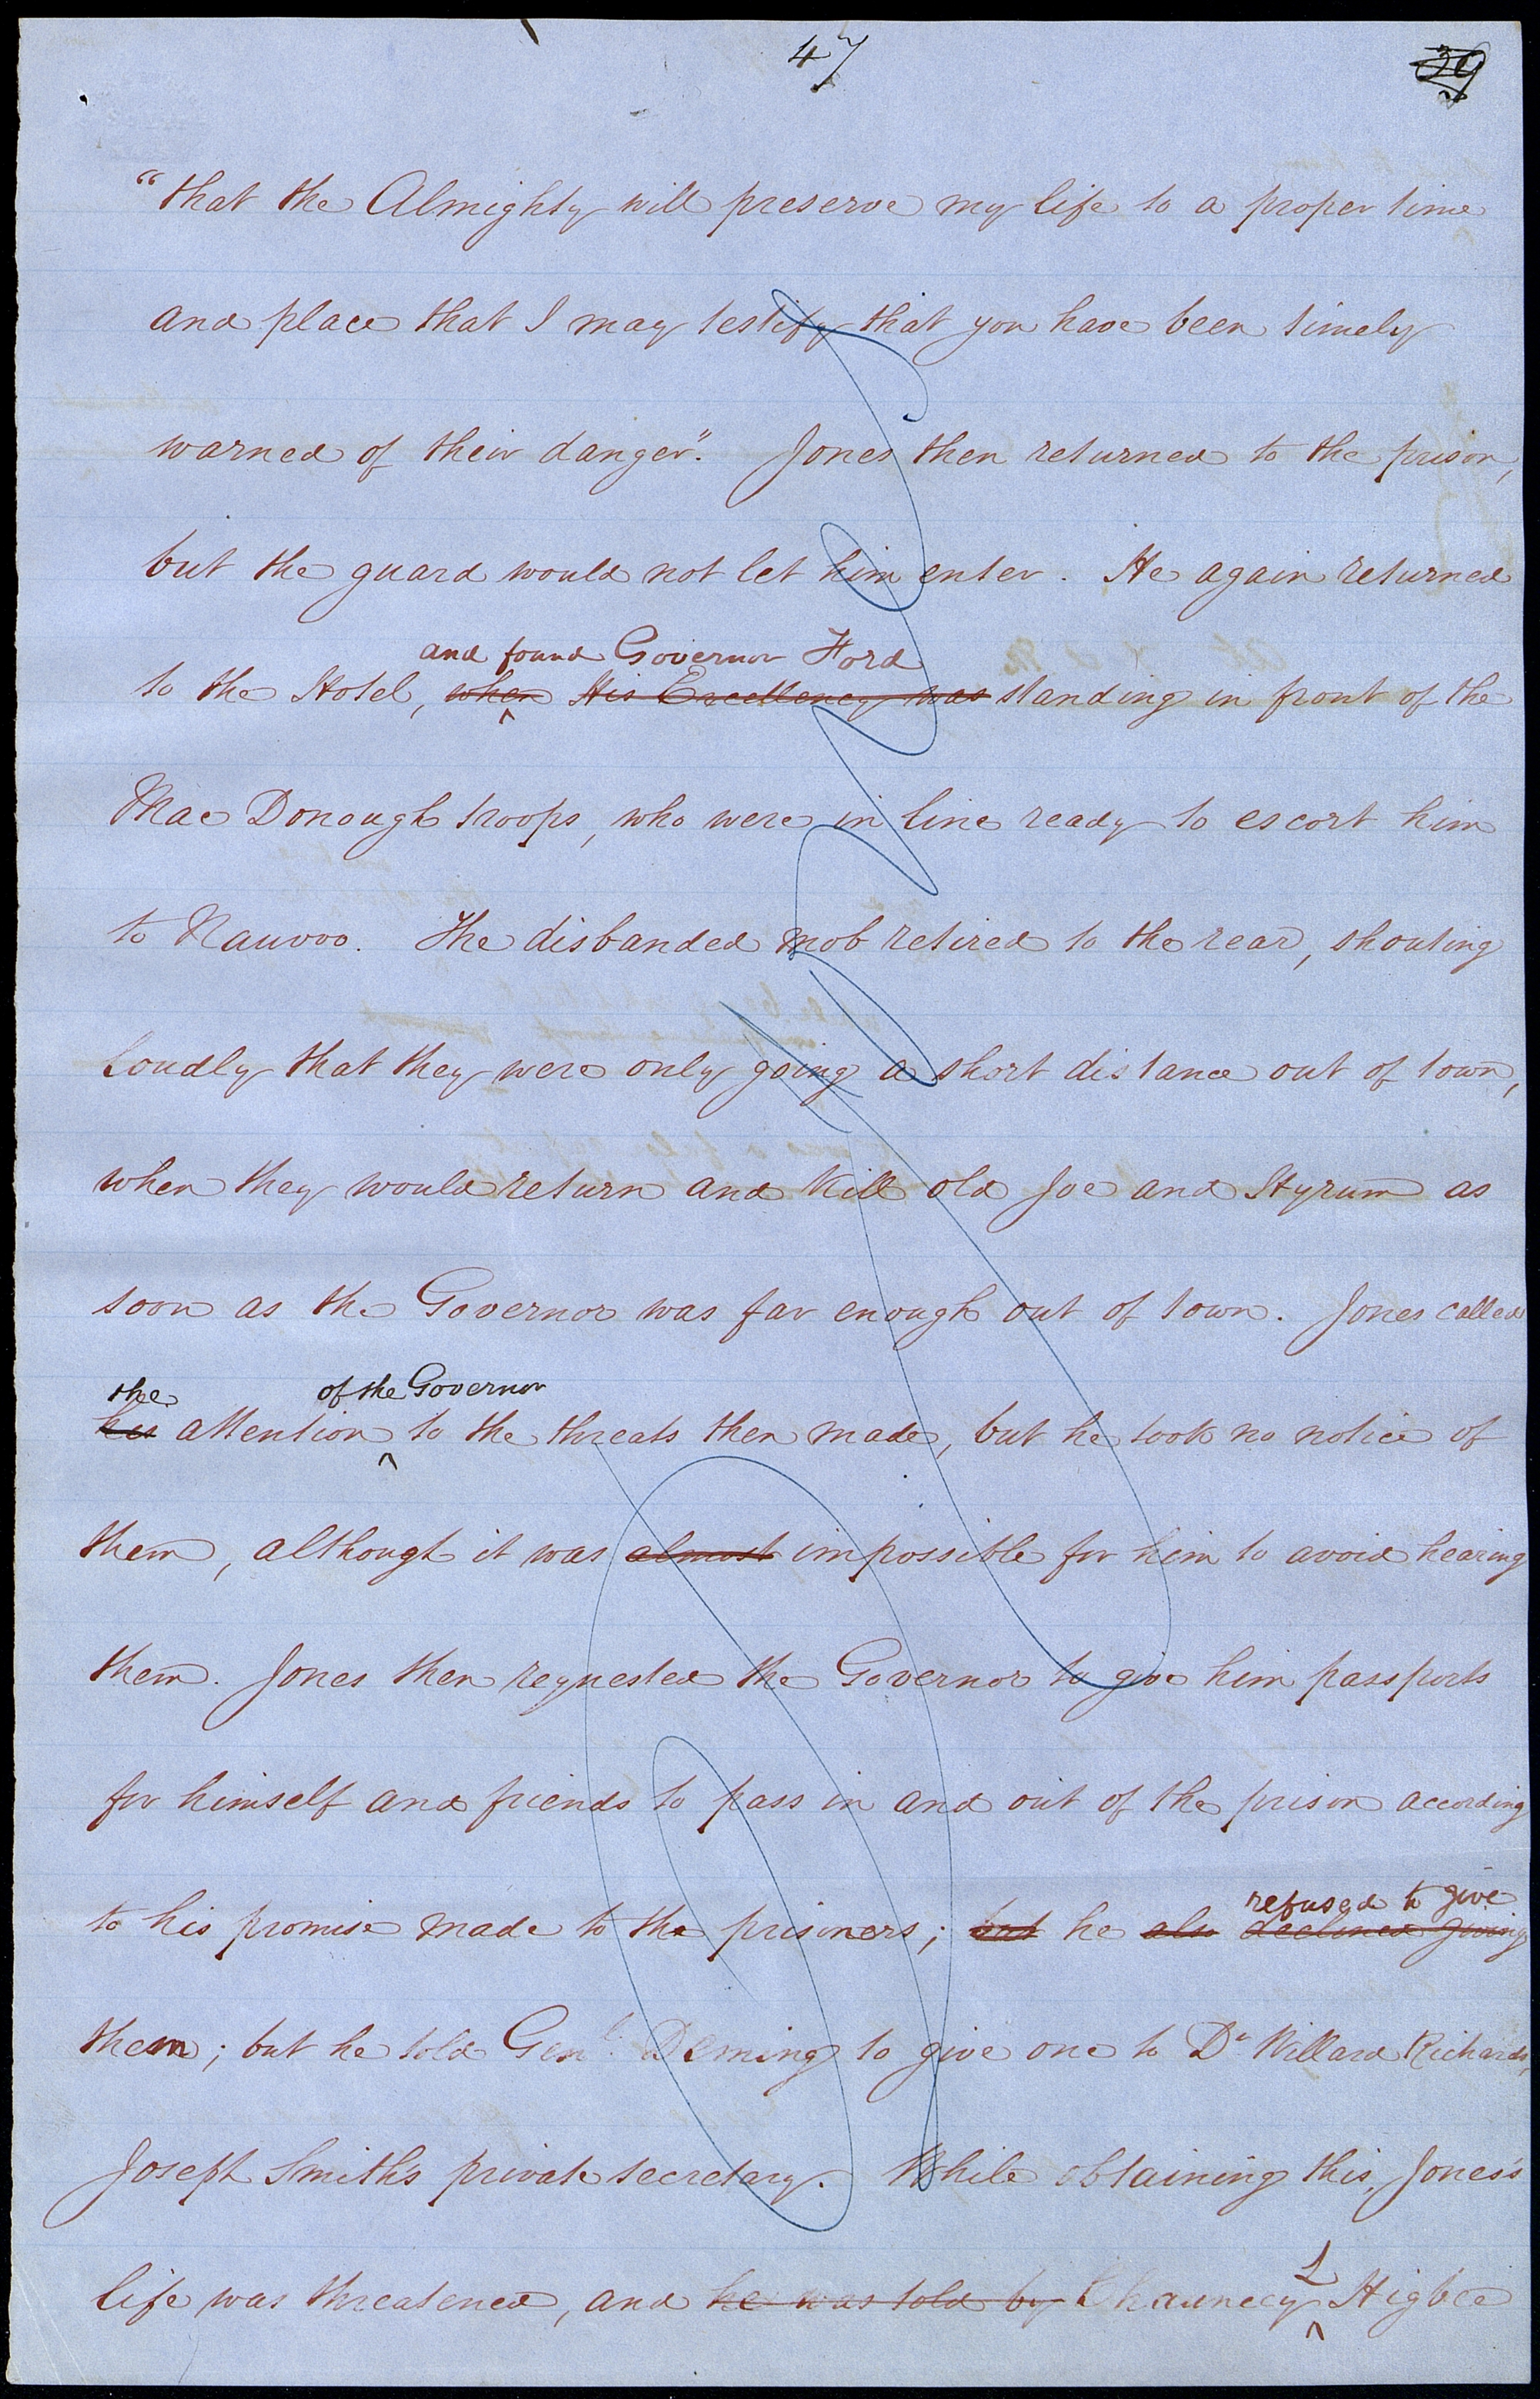 47
39
"that the Almighty will preserve my life to a proper time
and place that I may testify that you have been timely
warned of their danger". Jones then returned to the prison,
but the guard would not let him enter. He again returned
and found Governor Ford
to the Hotel, when His Excellency was standing in front of the
Mac Donough troops, who were in line ready to escort him
to Nauvoo. The disbanded mob retired to the rear, shouting
loudly that they were only going a short distance out of town,
when they would return and kill old Joe and Hyrum as
soon as the Governor was far enough out of town. Jones called
the of the Governor
his attention to the threats then made, but he took no notice of
them, although it was almost impossible for him to avoid hearing
them. Jones then requested the Governor to give him passports
for himself and friends to pass in and out of the prison according
refused to give
to his promise made to the prisoners; but he also declined giving
them; but he told Genl. Deming to give one to Dr Willard Richards,
Joseph Smith's private secretary. While obtaining this, Jones's
L
life was threatened, and he was told by Chauncey Higbee